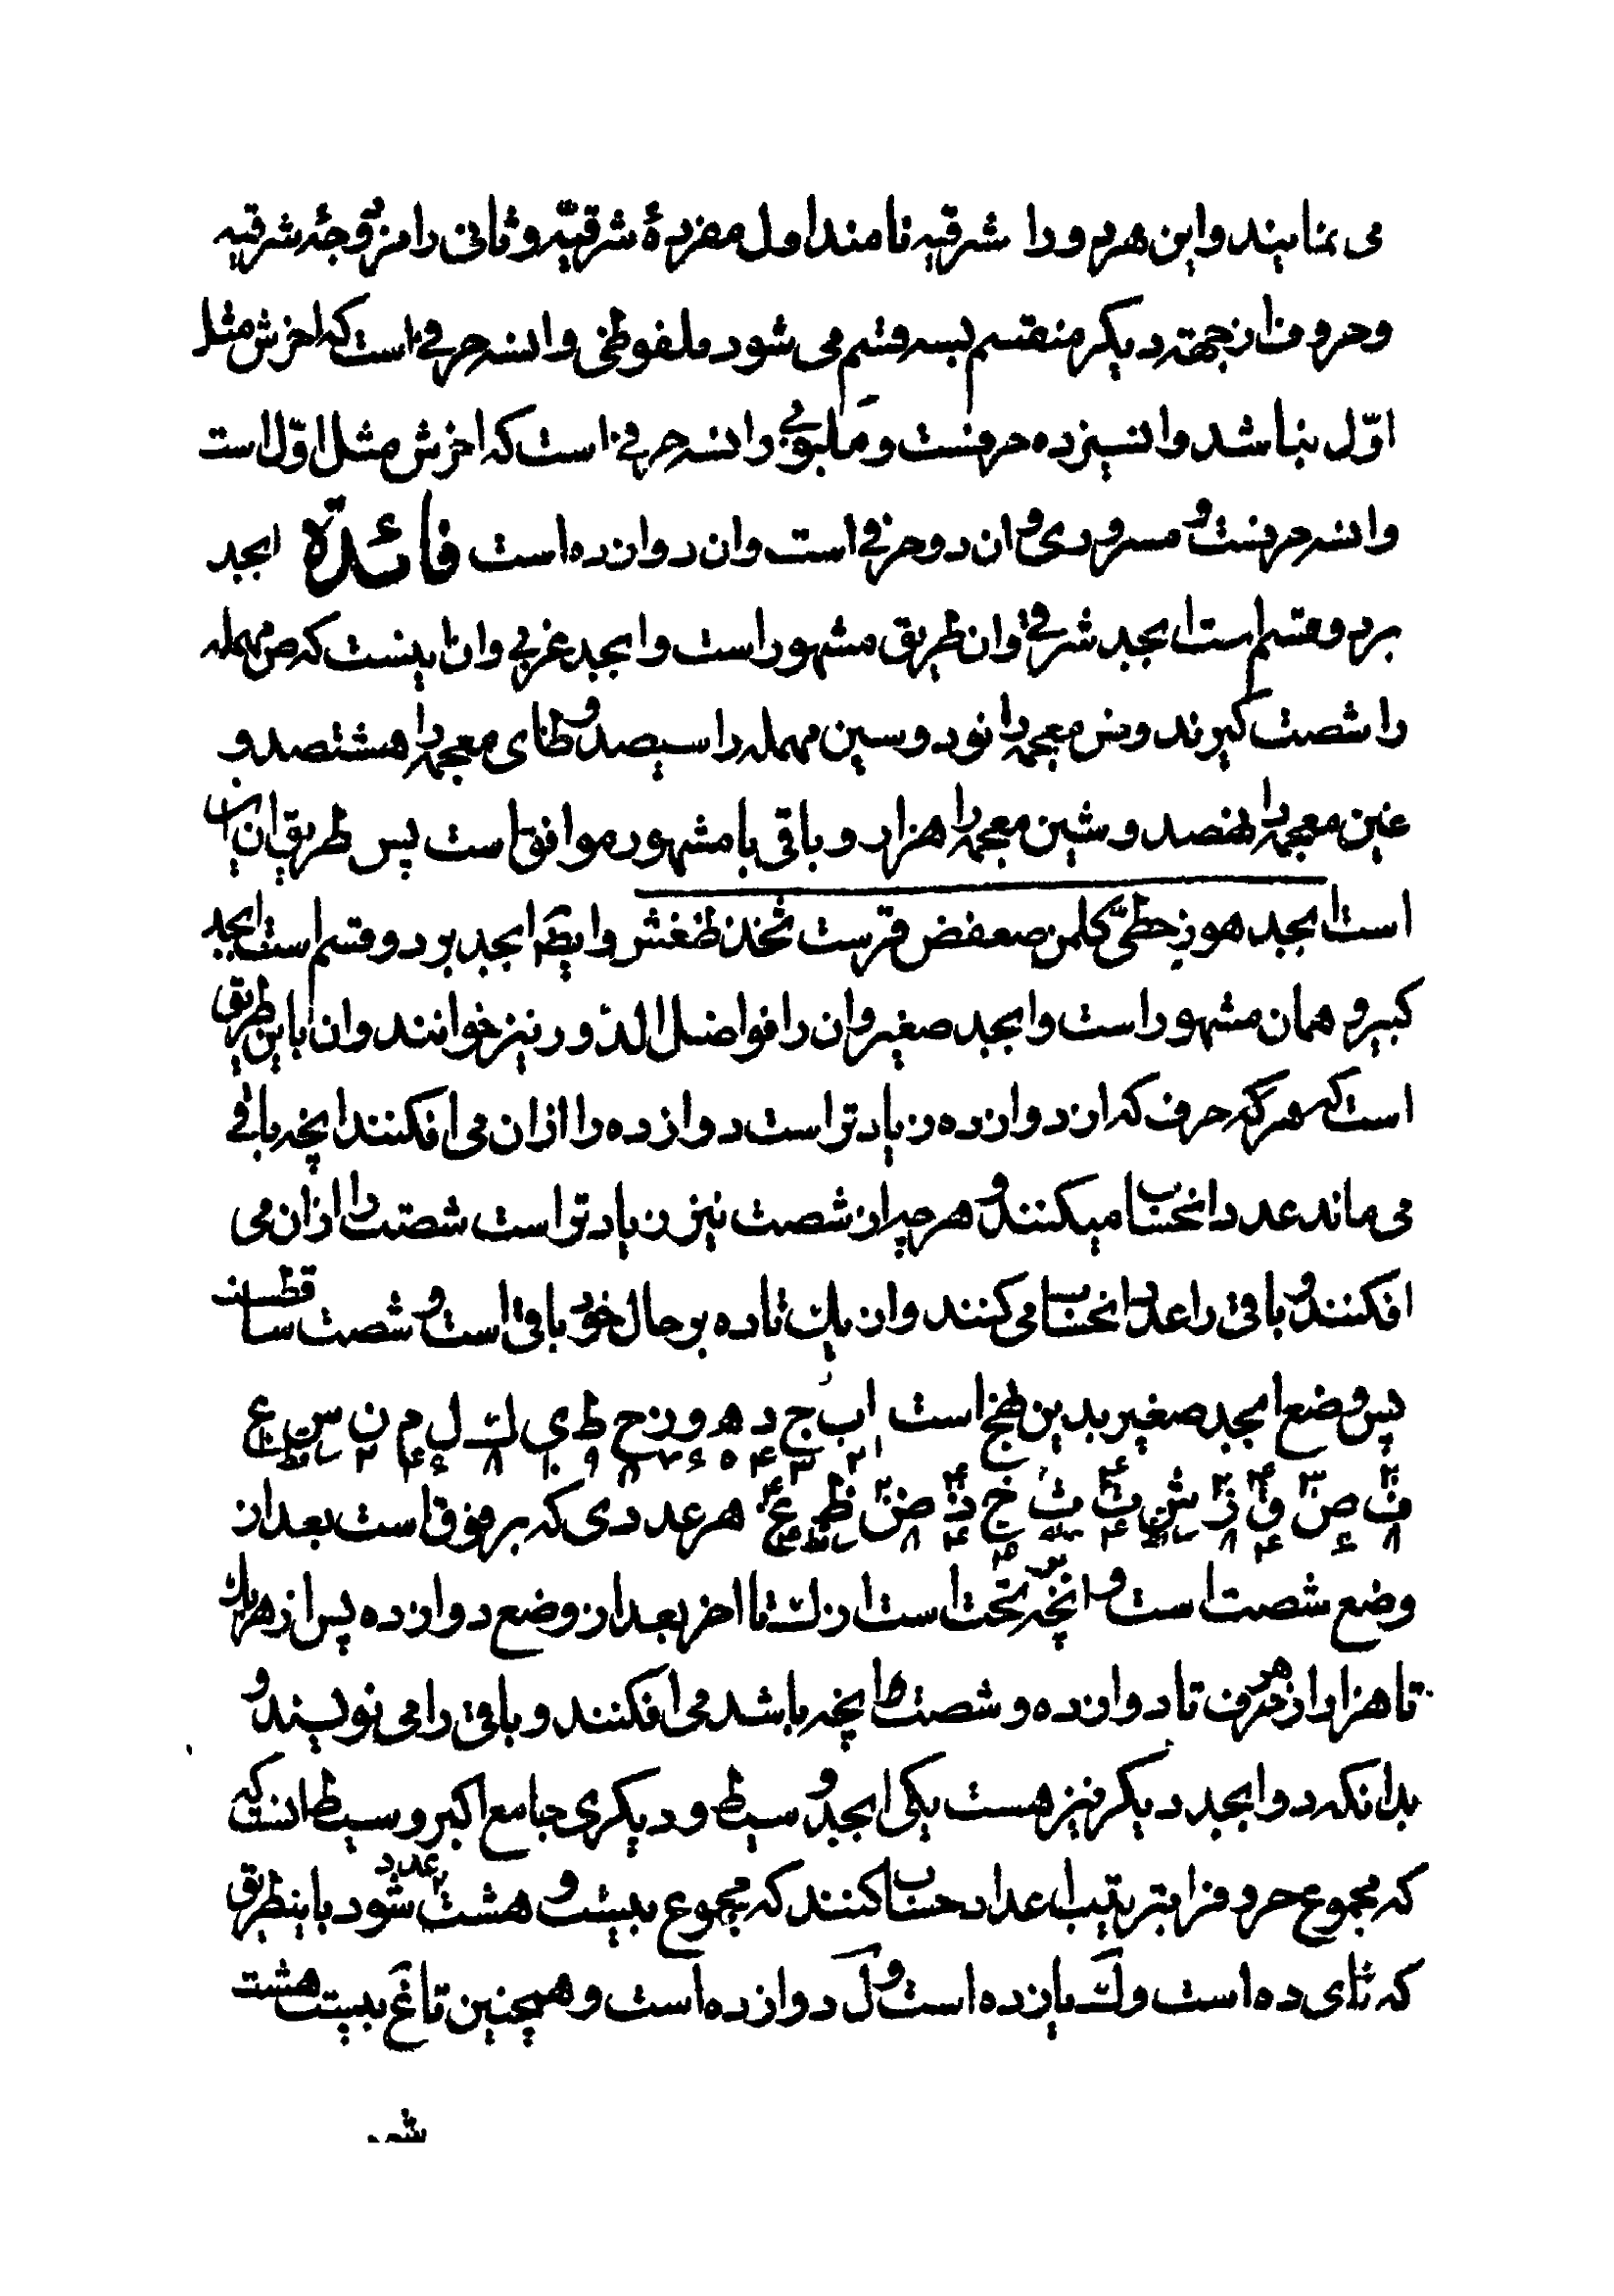 می نمایند و این هر دو را شرقیه نامند اول مفردهٔ شرقیّه و ثانی را مزوّجهٔ شرقیه
و حروف از جهة دیگر منقسم بسه قسم می شود ملفوظی و ان سه حرفی است که اخرش مثل
اوّل نباشد و ان سیزده حرفست و ملبوبی و ان سه حرفی است که اخرش مثل اوّل است
و ان سه حرفست و مسروری و ان دو حرفی است و ان دوازده است فائدة ابجد
بر دو قسم است ابجد شرقی و ان طریق مشهور است و ابجد غربی و ان اینست که ص مهمله
را شصت گیرند و ض معجمه را نود و سین مهمله را سیصد و ظای معجمه را هشتصد و
غین معجمه را نهصد و شین معجمه را هزار و باقی با مشهور موافق است پس طریق ان این
است ابجد هوز حطیّ کلمن صعفض قرست ثخذ ظغش و ایضا ابجد بر دو قسم است ابجد
کبیر و همان مشهور است و ابجد صغیر و ان را فواضل الدّور نیز خوانند و ان باین طریق
است که هر گه حرف که از دوازده زیادتر است دوازده را ازان می افکنند انچه باقی
می ماند عدد ان حساب میکنند و هر چه از شصت نیز زیادتر است شصت را ازان می
افکنند و باقی را عدد ان حساب می کنند و از یك تا ده بر حال خود باقی است و شصت ساقطست
پس وضع ابجد صغیر بدین نهج است ا ب ج د ه و ز ح ط ی ك ل م ن س ع
ف ص ق ر ش ت ث خ ذ ض ظ غ هر عددی که بر فوق است بعد از
وضع شصت است و انچه بر تحت است از ك تا اخر بعد از وضع دوازده پس از هر یك
تا هزار از هر حرف تا دوازده و شصت انچه باشد می افکنند و باقی را می نویسند و
بدانکه دو ابجد دیگر نیز هست یکی ابجد و سیط و دیگری جامع اکبر و سیط انست که
که مجموع حروف را بترتیب اعداد حساب کنند که مجموع بیست و هشت عدد شود باینطریق
که تا ی ده است و ك یازده است و ل دوازده است و همچنین تا غ بیست هشت